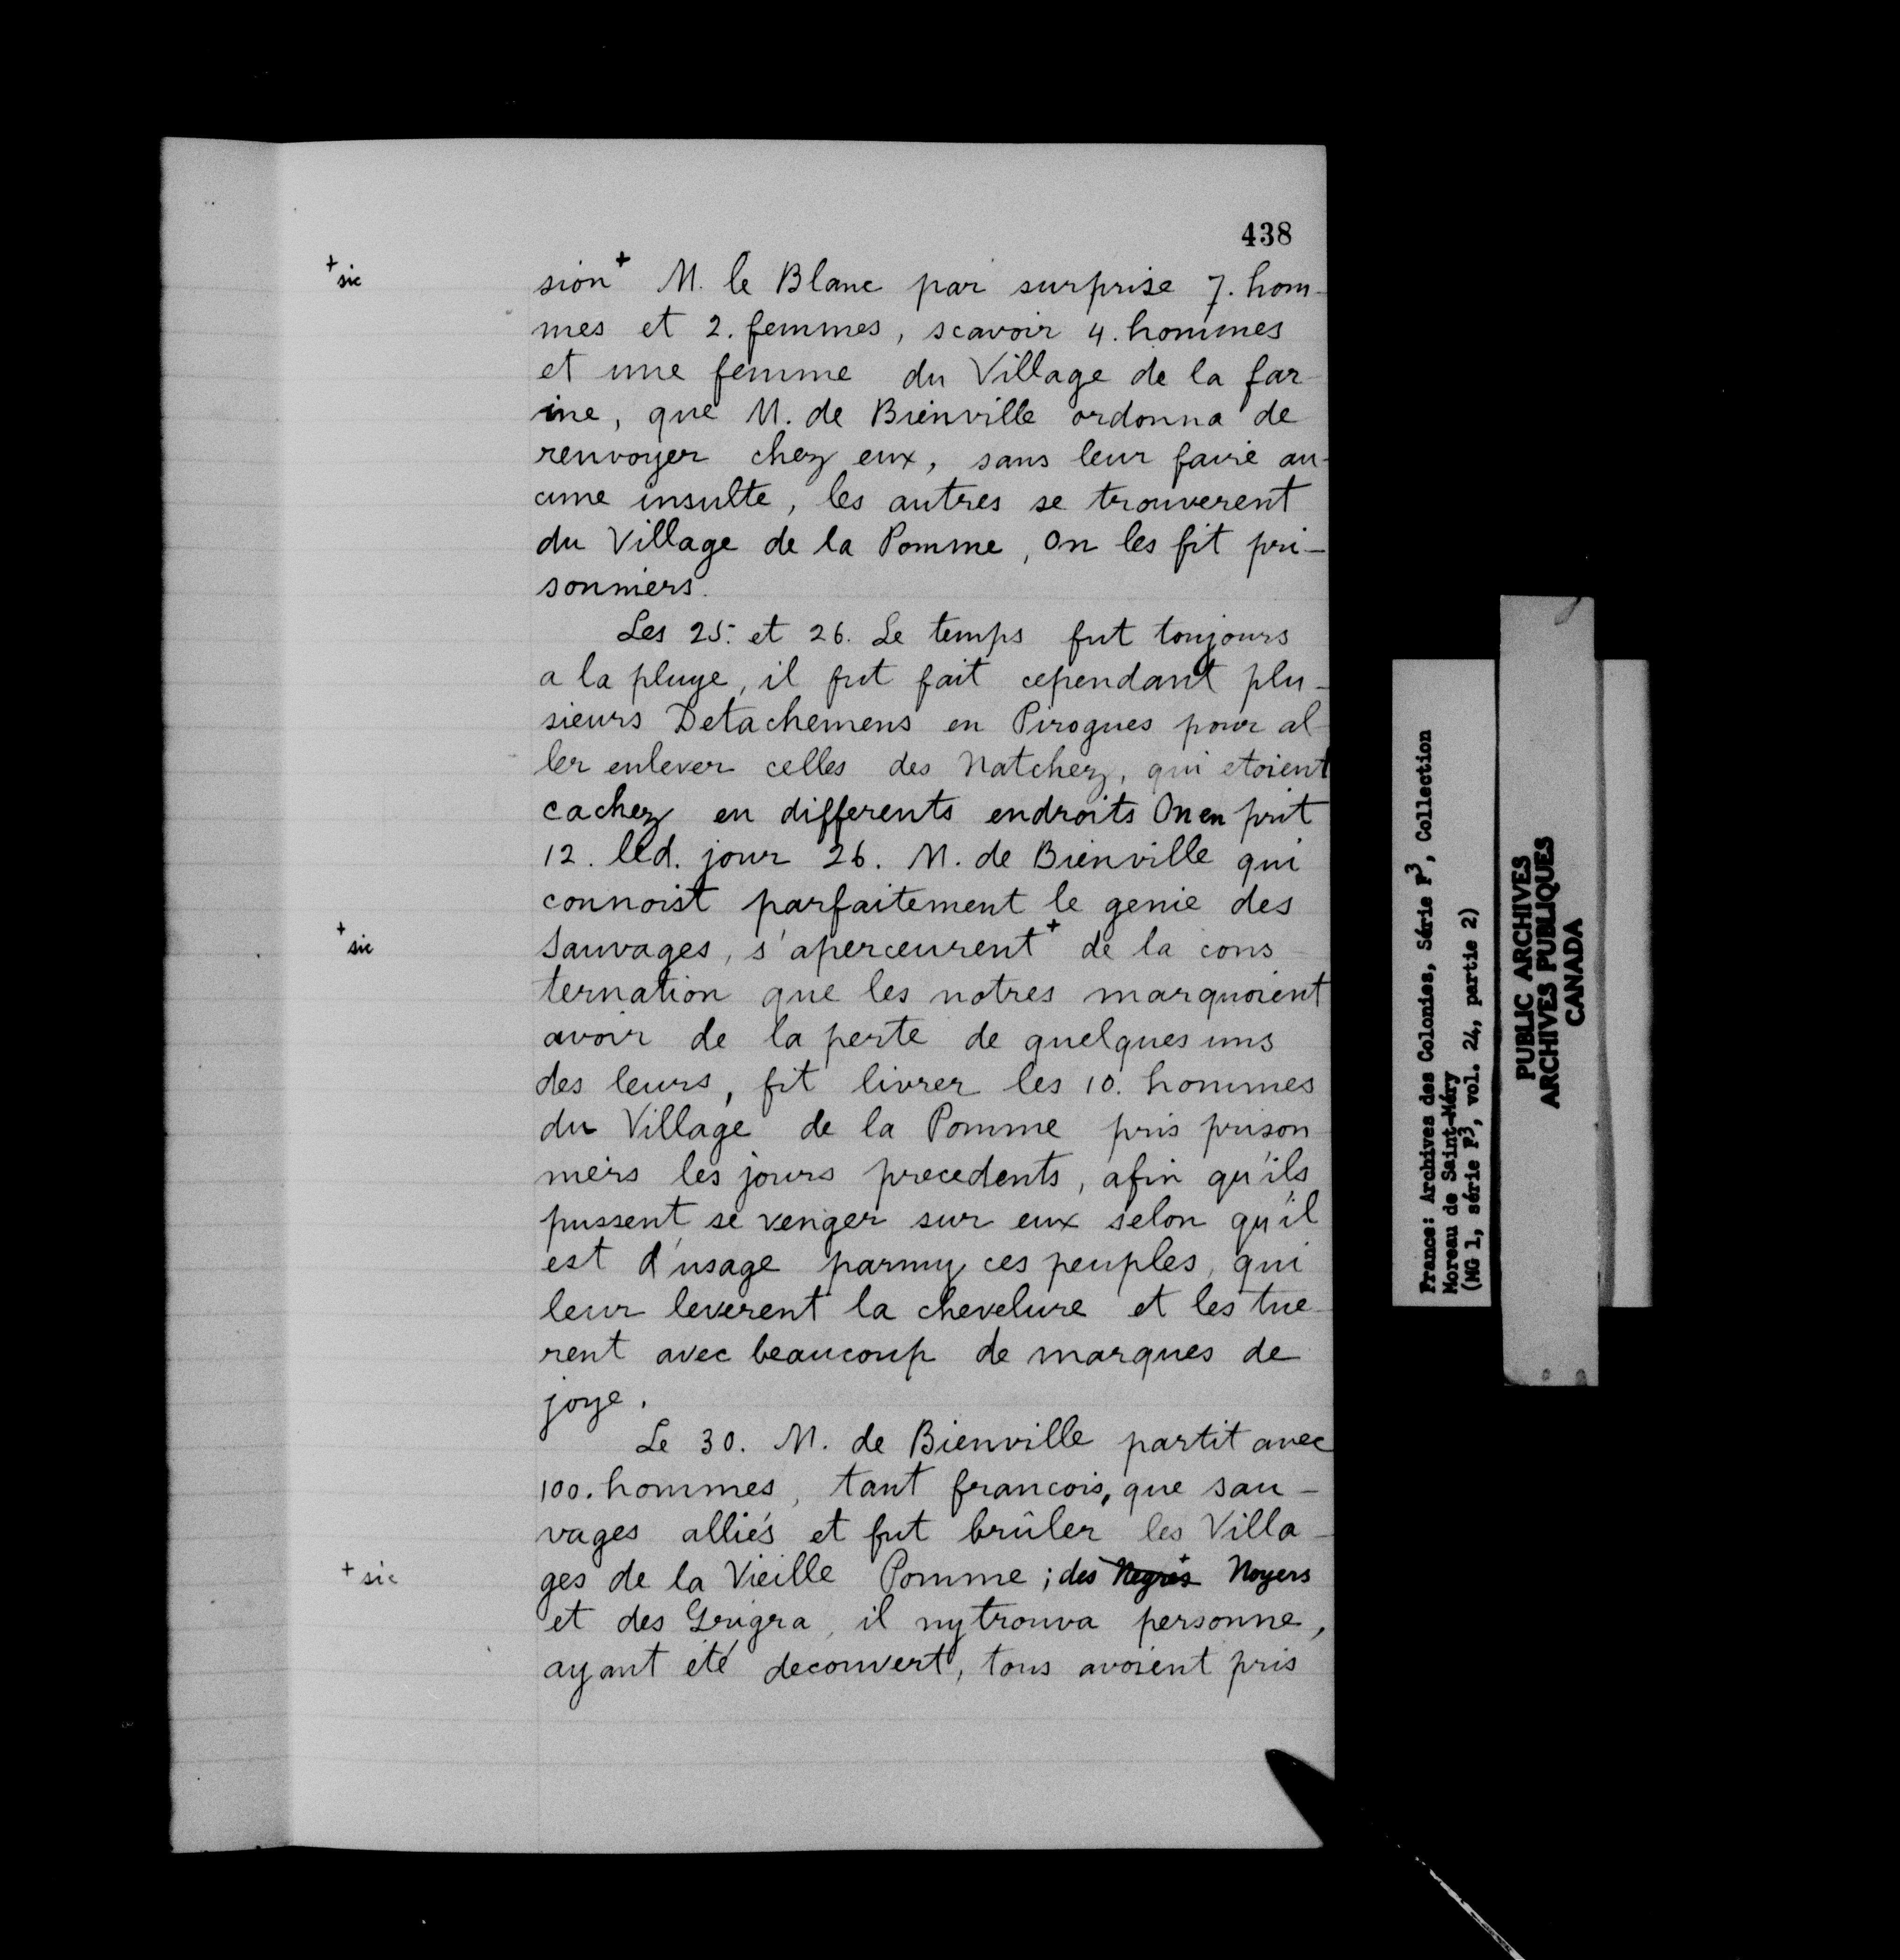 438
+sic
sion+ M. le Blanc par surprise 7. hom-
mes et 2. femmes, scavoir 4. hommes
et une femme du Village de la far-
ine, que M. de Bienville ordonna de
renvoyer chez eux, sans leur faire au-
cune insulte, les autres se trouverent
du Village de la Pomme, On les fit pri-
sonniers.
Les 25. et 26. Le temps fut toujours
a la pluye, il fut fait cependant plu-
sieurs Detachemens en Pirogues pour al-
ler enlever celles des Natchez, qui etoient
cachez en differents endroits On en prit
12. led. jour 26. M. de Bienville qui
connoist parfaitement le genie des
+sic
Sauvages, s'aperceurent+ de la cons-
ternation que les notres marquoient
avoir de la perte de quelques uns
des leurs, fit livrer les 10. hommes
du Village de la Pomme pris prison
niers les jours precedents, afin qu'ils
pussent se venger sur eux selon qu'il
est d'usage parmy ces peuples, qui
leur leverent la chevelure et les tue-
rent avec beaucoup de marques de
joye.
Le 30. M. de Bienville partit avec
100. hommes, tant francois, que sau-
vages alliés et fut brûler les Villa-
+sic
ges de la Vieille Pomme; des Negres+ Noyers
et des Grigra, il ny trouva personne,
ayant été decouvert, tous avoient pris
France: Archives des Colonies, Série F3, Collection
Moreau de Saint-Méry
(MG 1, série F3, vol. 24, partie 2)
PUBLIC ARCHIVES
ARCHIVES PUBLIQUES
CANADA